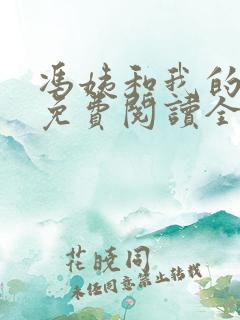 馮姨和我的
免費閱讀全
花曉同
未经同意禁止转载